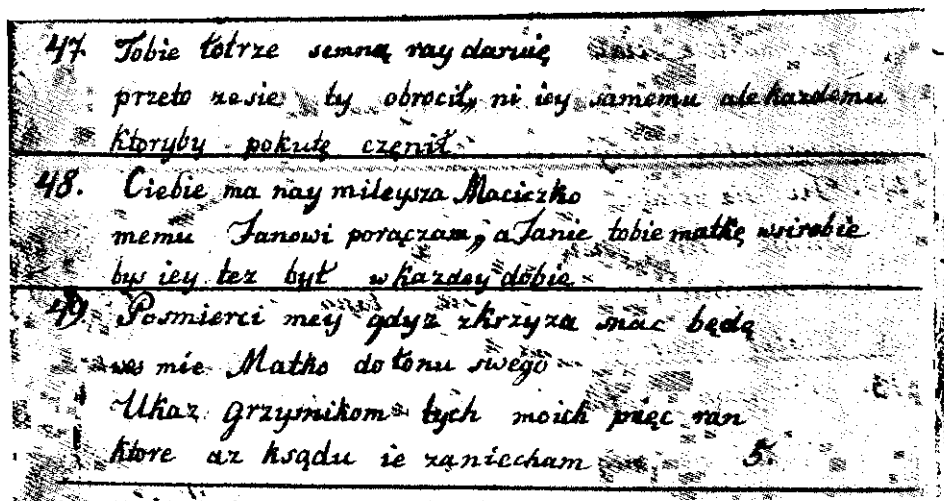 47. Tobie łotrze semną ray daruię
przeto zesie ty obrocił, ni iey samemu ale każdemu
ktoryby pokutę czenił
48. Ciebie ma nay mileysza Maciczko
memu Janowi porączam, a Janie tobie matkę
byś iey tez był w kazdey dobie
49. Pośmierci mey gdyz zkrzyza snac będę
mie Matko do łonu swego
Ukaz grzysnikom tych moich pięc ran
ktore az ksądu ie zaniecham 5.